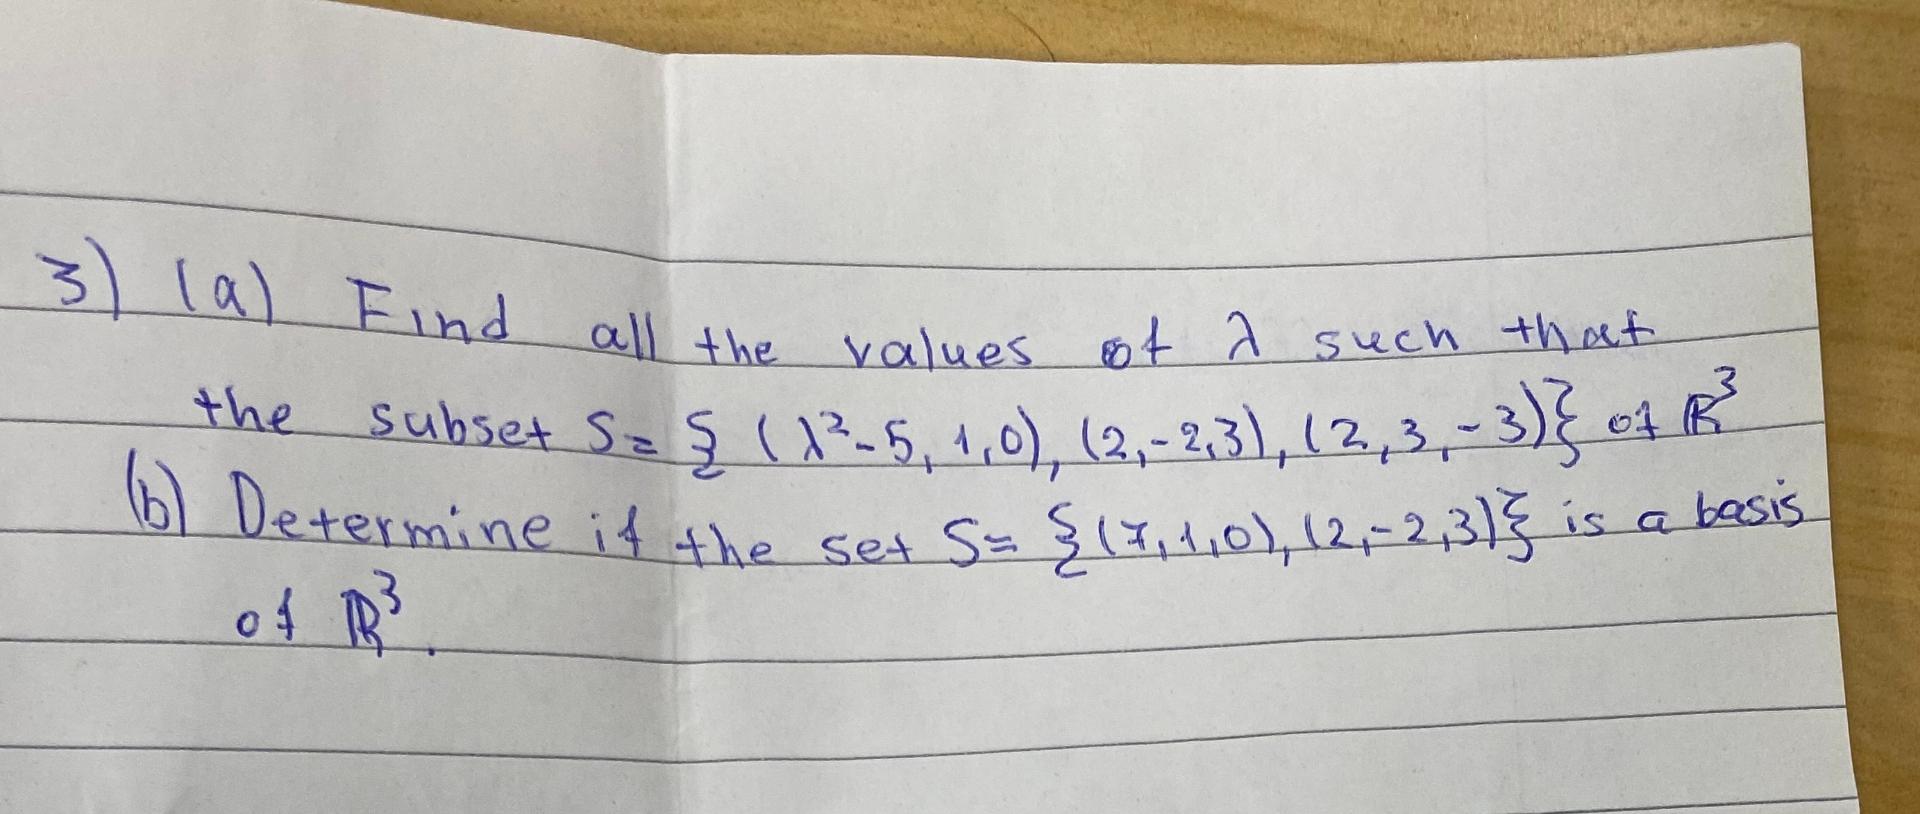 3) (a) Find all the values of λ such that
the subset S = { (λ²-5, 1, 0), (2, -2, 3), (2, 3, -3)} of ℝ³
(b) Determine if the set S = {(7, 1, 0), (2, -2, 3)} is a basis
of ℝ³.